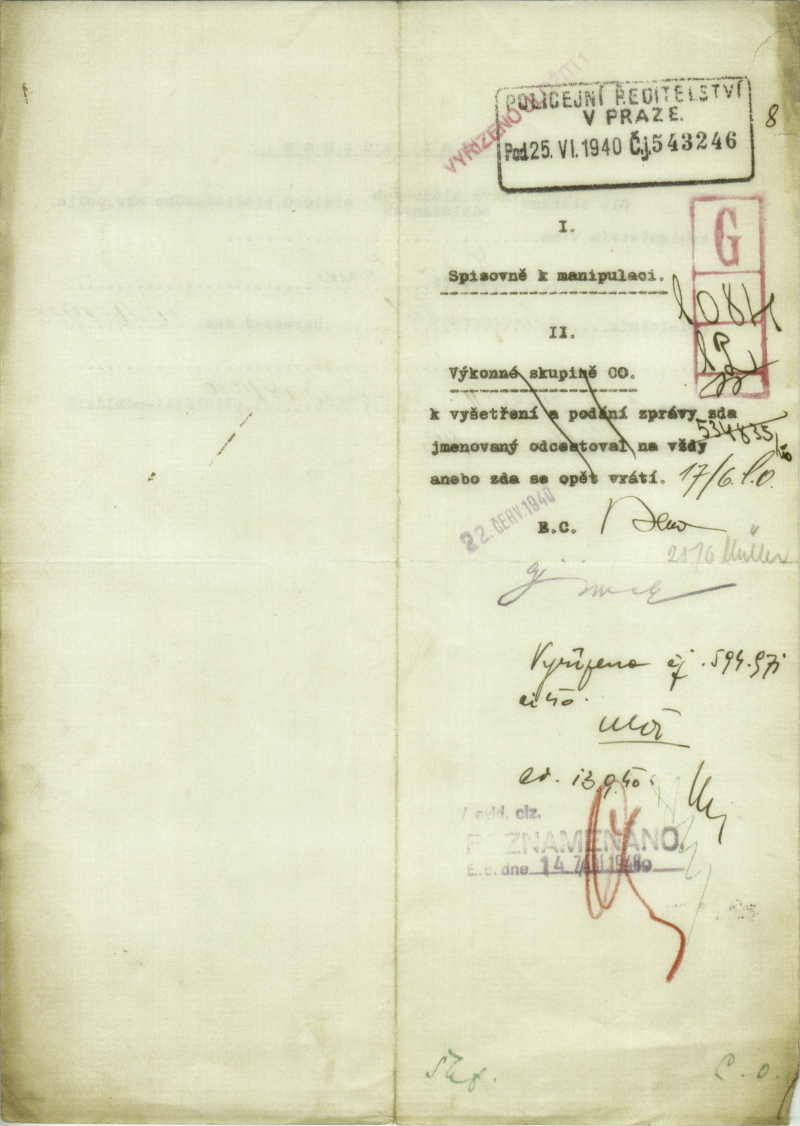 POLICEJNÍ ŘEDITELSTVÍ
V PRAZE.
Pod 25. VI. 1940 Č.j. 543246
8
VYŘÍZENO
G
I.
Spisovně k manipulaci.
1084
II.
Výkonné skupině CO.
k vyšetření a podání zprávy zda
534835
jmenovaný odcestoval na vždy
anebo zda se opět vrátí.
17/6.
22. ČERV. 1940
E.C.
2816 Müller
Vyřízeno čj. 594.971
ai 40.
Ulož
ad. 13.9.40.
evid. ciz.
POZNAMENÁNO.
E.c. dne 14 ZÁŘÍ 1940
C.O.